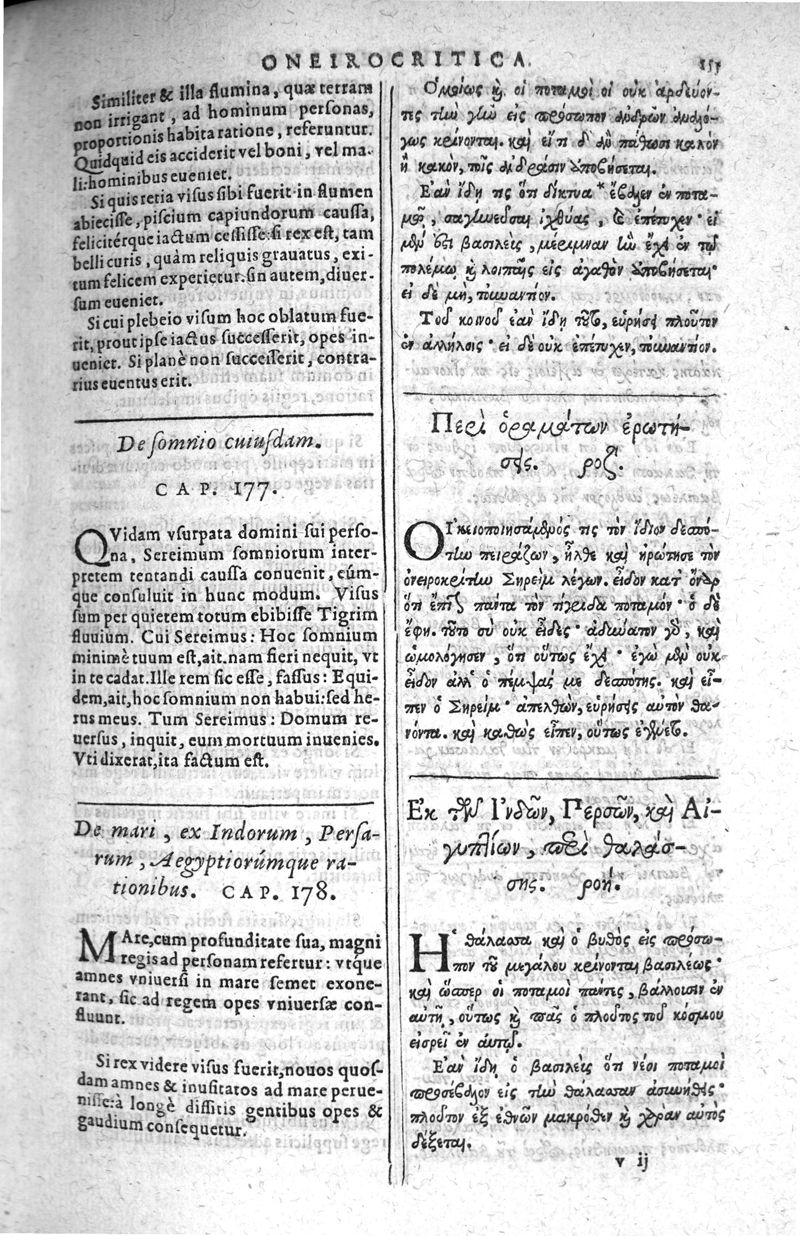 ONEIROCRITICA.
155
Similiter & illa flumina, quæ terram
non irrigant, ad hominum personas,
proportionis habita ratione, referuntur.
Quidquid eis acciderit vel boni, vel ma-
li: hominibus eueniet.
Si quis retia visus sibi fuerit in flumen
abiecisse, piscium capiundorum caussa,
felicitérque iactum cessisse: si rex est, tam
belli curis, quàm reliquis grauatus, exi-
tum felicem experietur: sin autem, diuer-
sum eueniet.
Si cui plebeio visum hoc oblatum fue-
rit, prout ipse iactus successerit, opes in-
ueniet. Si planè non successerit, contra-
rius euentus erit.
De somnio cuiusdam.
CAP. 177.
QVidam vsurpata domini sui perso-
na, Sereimum somniorum inter-
pretem tentandi caussa conuenit, cúm-
que consuluit in hunc modum. Visus
sum per quietem totum ebibisse Tigrim
fluuium. Cui Sereimus: Hoc somnium
minimè tuum est, ait. nam fieri nequit, vt
in te cadat. Ille rem sic esse, fassus: Equi-
dem, ait, hoc somnium non habui: sed he-
rus meus. Tum Sereimus: Domum re-
uersus, inquit, eum mortuum inuenies.
Vti dixerat, ita factum est.
De mari, ex Indorum, Persa-
rum, Aegyptiorúmque ra-
tionibus. CAP. 178.
MAre, cum profunditate sua, magni
regis ad personam refertur: vtque
amnes vniuersi in mare semet exone-
rant, sic ad regem opes vniuersæ con-
fluunt.
Si rex videre visus fuerit, nouos quos-
dam amnes & inusitatos ad mare perue-
nisse: à longè dissitis gentibus opes &
gaudium consequetur.
Ὁμοίως καὶ οἱ ποταμοὶ οἱ οὐκ ἀρδεύον-
τες τὴν γῆν εἰς πρόσωπον ἀνδρῶν ἀναλό-
γως κρίνονται. καὶ εἴ τι δ' ἂν πάθωσι καλὸν
ἢ κακὸν, τοῖς ἀνδράσιν ἀποβήσεται.
Ἐὰν ἴδῃ τις ὅτι δίκτυα * ἔβαλεν ἐν ποτα-
μῷ, σαγηνεῦσαι ἰχθύας, καὶ ἐπέτυχεν· εἰ
μὲν ἔστι βασιλεὺς, μέριμναν ἣν ἔχει ἐν τῷ
πολέμῳ καὶ λοιπαῖς εἰς ἀγαθὸν ἀποβήσεται·
εἰ δὲ μὴ, τοὐναντίον.
Τοῦ κοινοῦ ἐὰν ἴδῃ τοῦτο, εὑρήσει πλοῦτον
ἐν ἀλλήλοις· εἰ δὲ οὐκ ἐπέτυχεν, τοὐναντίον.
Περὶ ὁραμάτων ἐρωτή-
σεως. ροζ.
ΟἸκειοποιησάμενός τις τὸν ἴδιον δεσπό-
την πειράζων, ἦλθε καὶ ἠρώτησε τὸν
ὀνειροκρίτην Σηρεὶμ λέγων. εἶδον κατ' ὄναρ
ὅτι ἔπιον πάντα τὸν τίγριδα ποταμόν· ὁ δὲ
ἔφη. τοῦτο σὺ οὐκ εἶδες· ἀδύνατον γὰρ, καὶ
ὡμολόγησεν, ὅτι οὕτως ἔχει· ἐγὼ μὲν οὐκ
εἶδον ἀλλ' ὁ πέμψας με δεσπότης. καὶ εἶ-
πεν ὁ Σηρεὶμ· ἀπελθὼν, εὑρήσεις αὐτὸν θα-
νόντα. καὶ καθὼς εἶπεν, οὕτως ἐγένετο.
Ἐκ τῶν Ἰνδῶν, Περσῶν, καὶ Αἰ-
γυπτίων, περὶ θαλάσ-
σης. ροή.
Ἡ θάλασσα καὶ ὁ βυθὸς εἰς πρόσω-
πον τοῦ μεγάλου κρίνονται βασιλέως·
καὶ ὥσπερ οἱ ποταμοὶ πάντες, βάλλουσιν ἐν
αὐτῇ, οὕτως καὶ πᾶς ὁ πλοῦτος τοῦ κόσμου
εἰσρεῖ ἐν αὐτῷ.
Ἐὰν ἴδῃ ὁ βασιλεὺς ὅτι νέοι ποταμοὶ
προσέβαλον εἰς τὴν θάλασσαν ἀσυνήθεις·
πλοῦτον ἐξ ἐθνῶν μακρόθεν καὶ χαρὰν αὐτὸς
δέξεται.
v ij